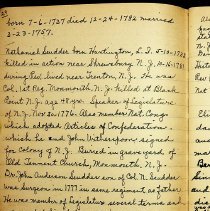 born 7-6-1737 died 12-24-1782 married
3-23-1757.
Nathaniel Scudder born Huntington, L. I. 5-10-1733
killed in action near Shrewsbury N. J. 10-15-1781
during Rev. lived near Trenton, N. J. He was
Col. 1st Reg. Monmouth N. J. killed at Black
Point N. J. age 48 yrs. Speaker of Legislature
of N. J. Nov 30, 1776. Also member Nat. Cong.
which adopted Articles of Confederation
which he and John Witherspoon signed
for Colony of N. J. Buried in graveyard of
Old Tennent Church, Monmouth, N. J.
Dr. John Anderson Scudder son of Col. N. Scudder
was Surgeon in 1777 in same regiment as father
He was member of Legislature several terms and